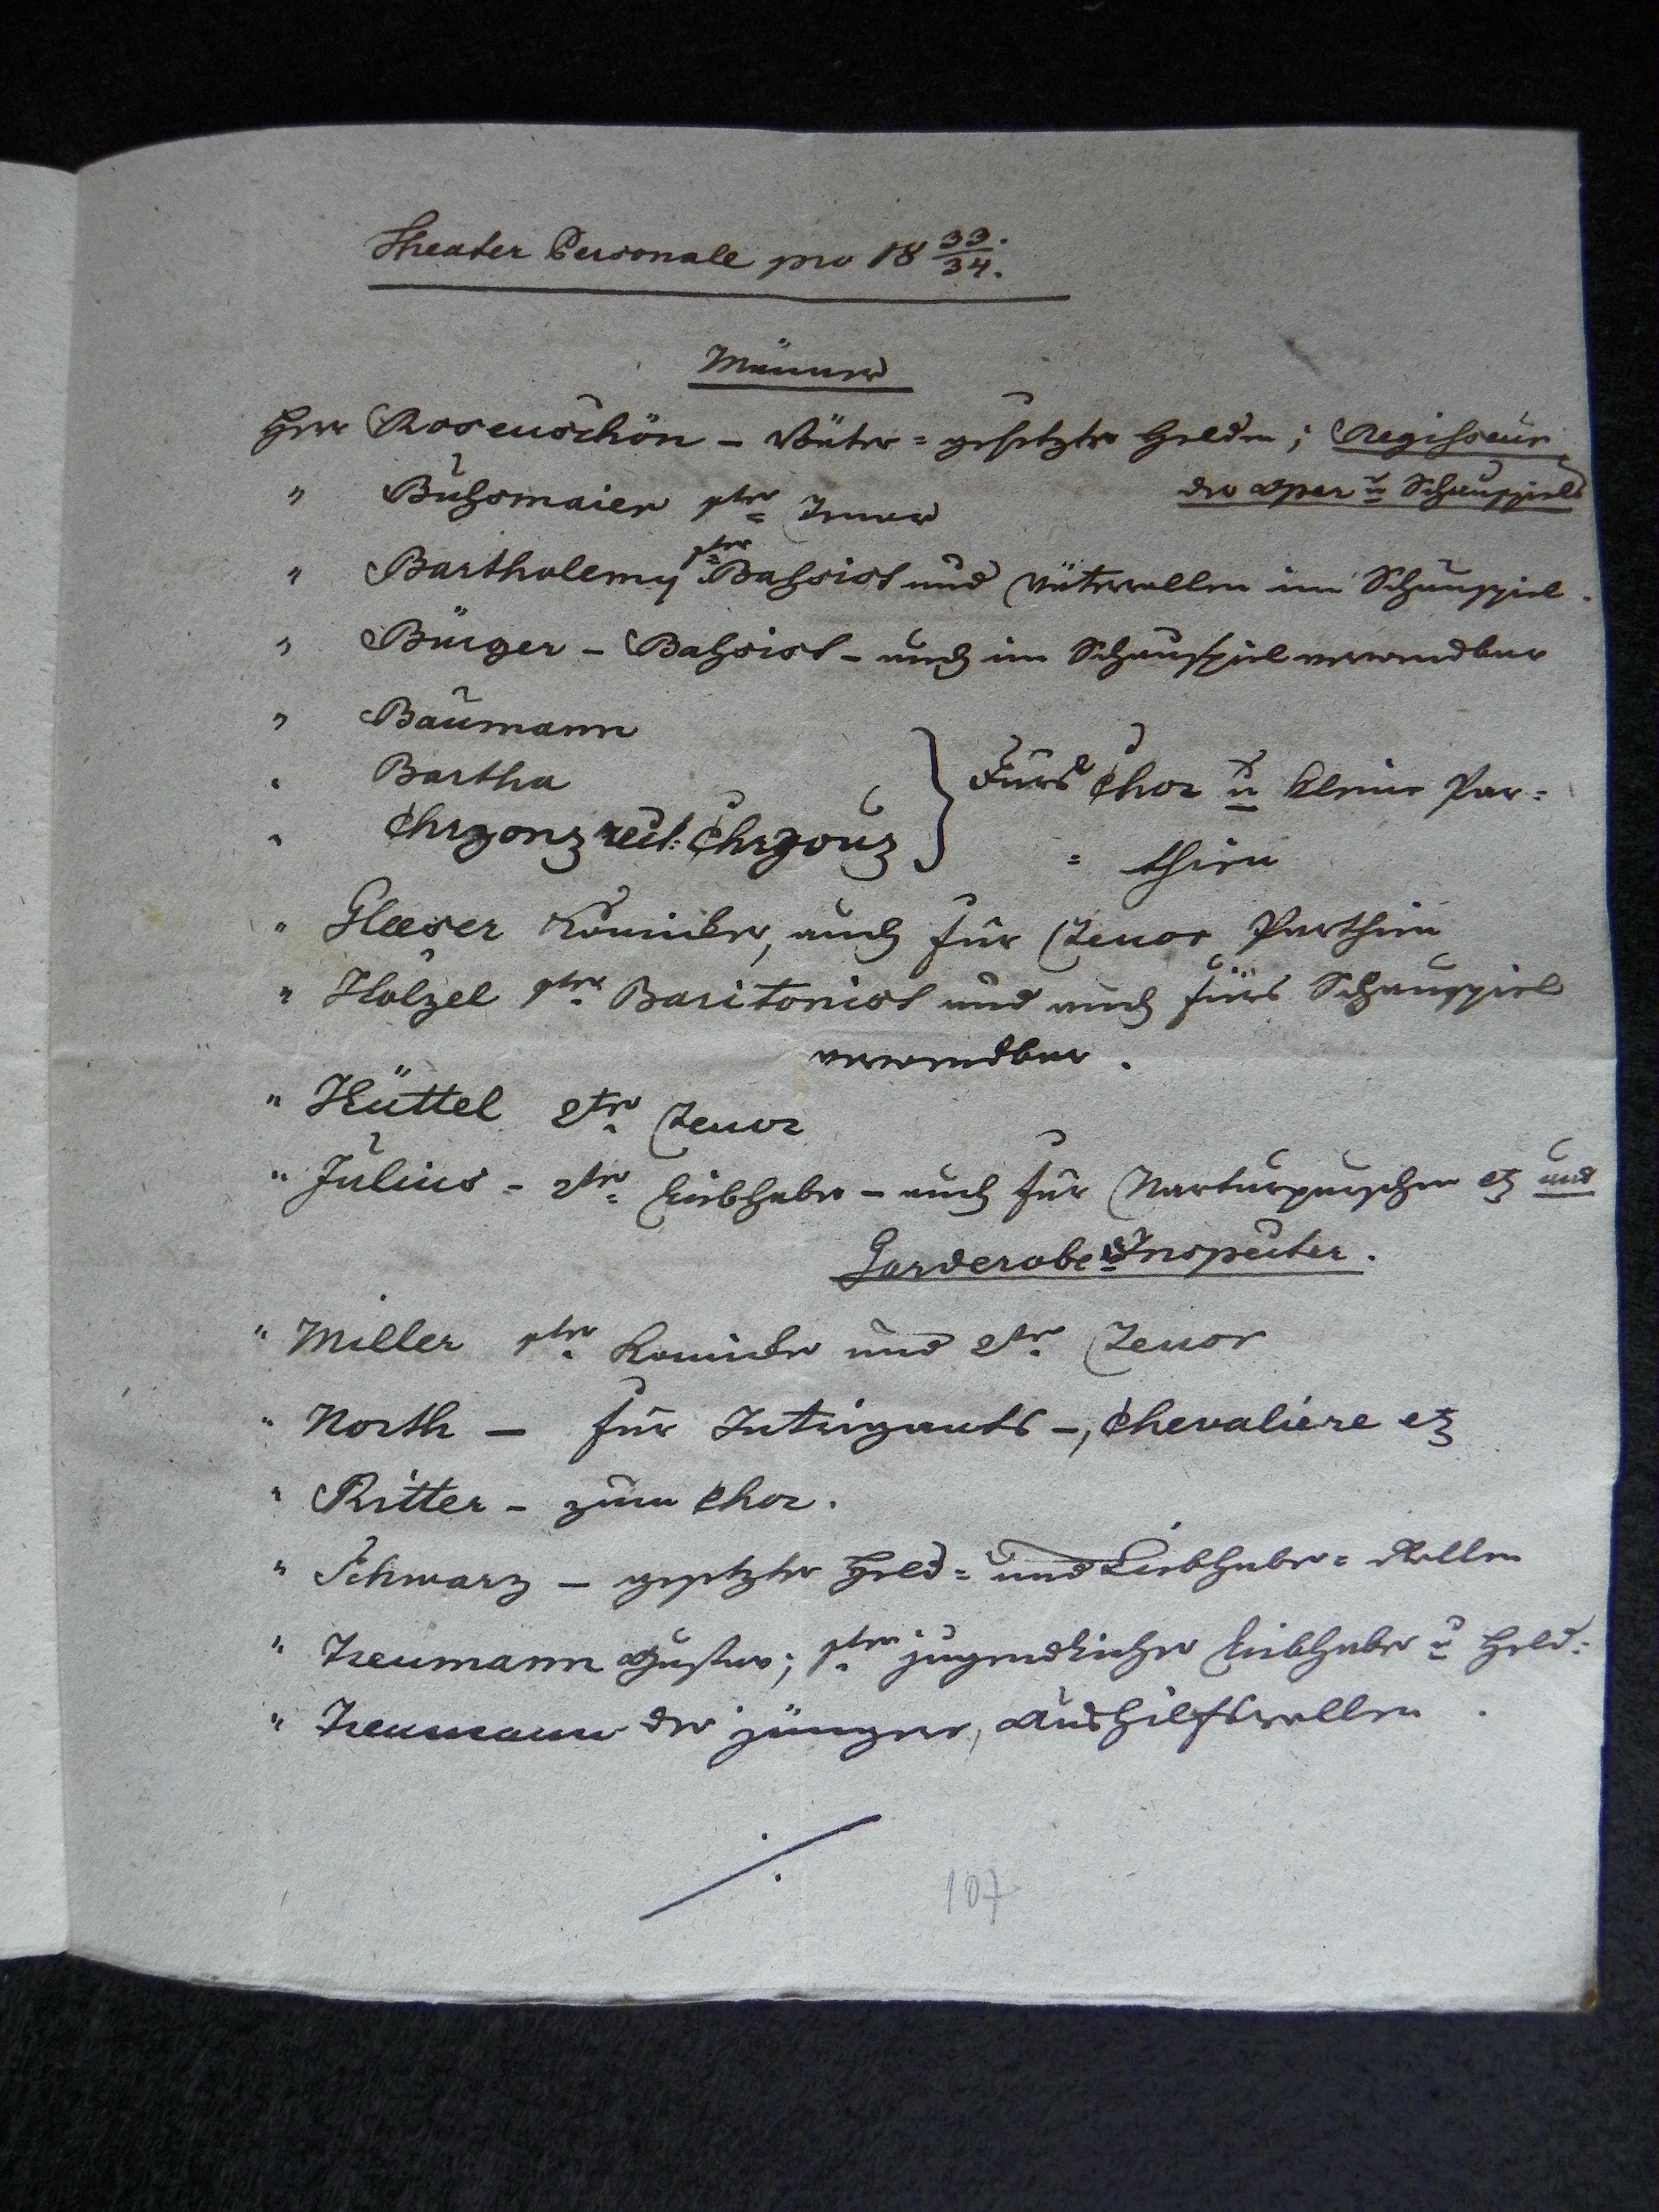 Theater Personale pro 18 33/34.
Männer
Herr Rosenschön – Väter = gesetzte Helden; Regisseur
der Oper u Schauspiels
" Buhsmaier 1ter Tenor
" Bartholemy 1ter Bahsist und Väterrollen im Schauspiel.
" Bürger – Bahsist – auch im Schauspiel verwendbar
" Baumann
" Bartha
Fürs Chor u kleine Par=
" Chrzonz rect: Chrzouz
= thien
" Glaeser Komiker, auch für Tenor Parthien
" Holzel 1ter Baritonist und auch fürs Schauspiel
verwendbar.
" Hüttel 2ter Tenor
" Julius – 2ter Liebhaber – auch für Naturpurschen etz und
Garderobe Inspecter.
" Miller 1ter Komiker und 2ter Tenor
" North – für Intrigants –, Chevaliere etz
" Ritter – zum Chor.
" Schwarz – gesetzte Held = und Liebhaber = Rollen
" Treumann Gustav; 1ter jugendlicher Liebhaber u Held:
" Treumann der jüngere, Aushilfsrollen.
./.
107